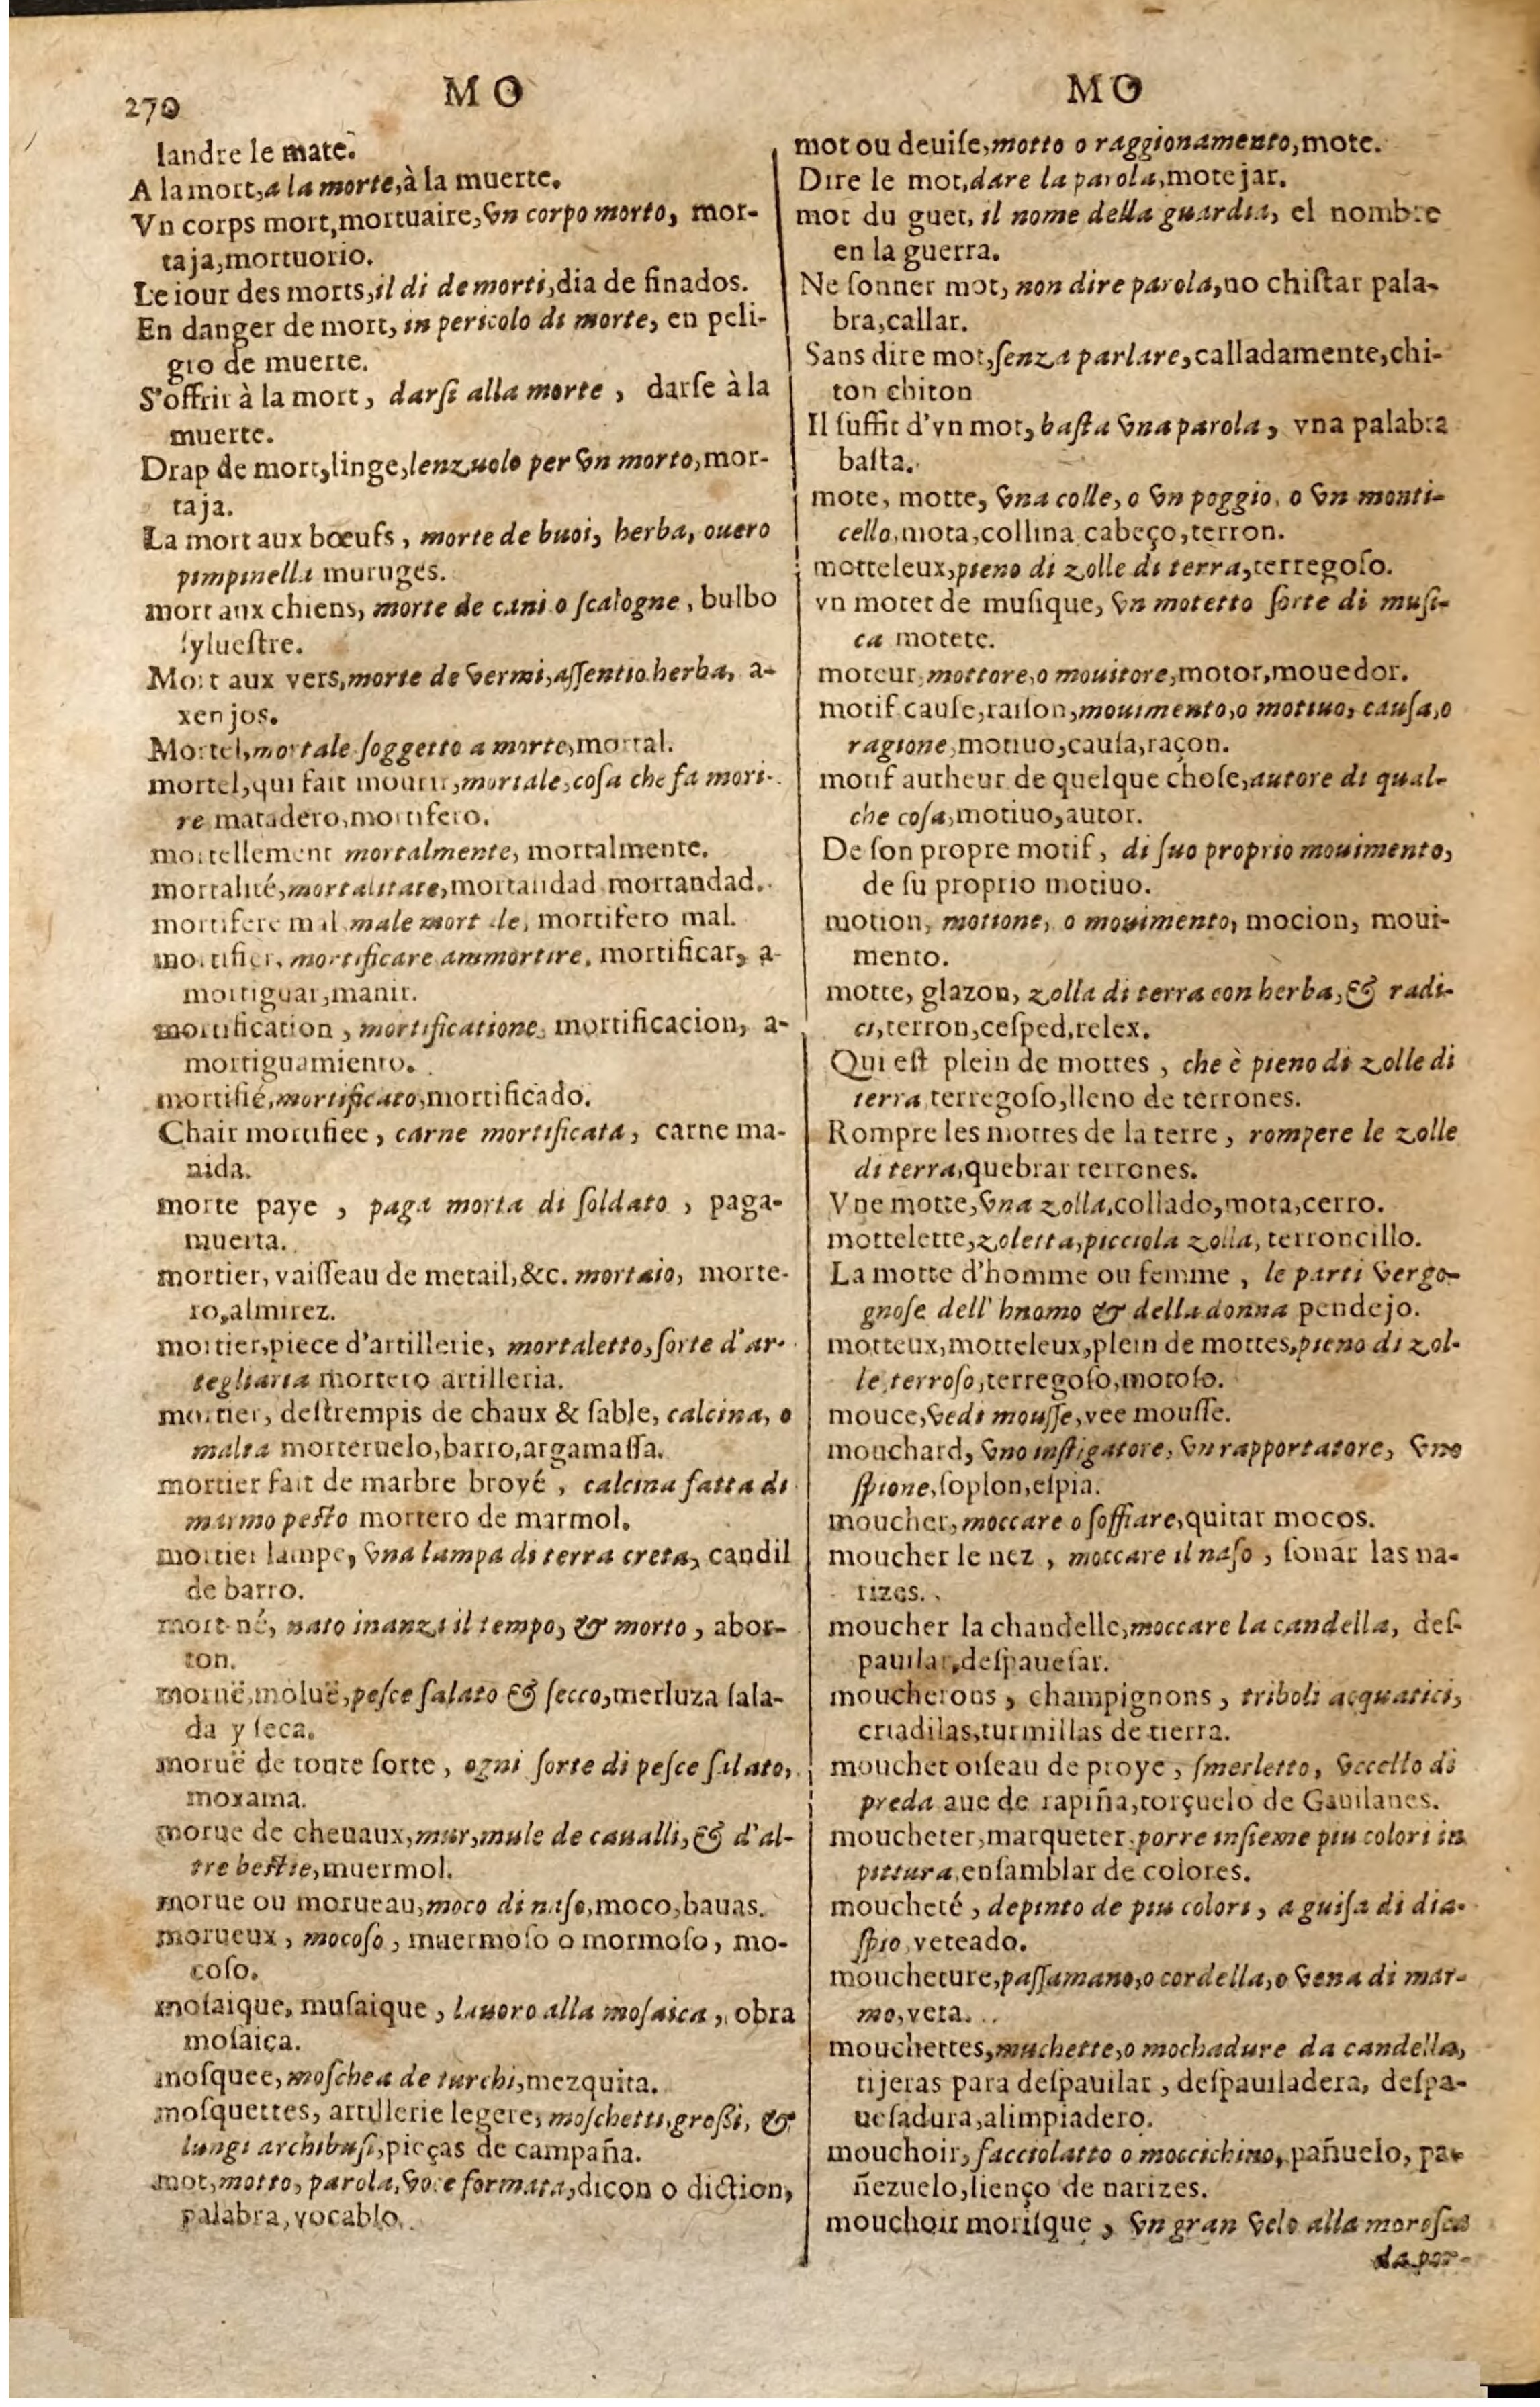 270
MO
MO
landre le mate.
A la mort, a la morte, à la muerte.
Vn corps mort, mortuaire, vn corpo morto, mor-
taja, mortuorio.
Le iour des morts, il di de morti, dia de finados.
En danger de mort, in pericolo di morte, en peli-
gro de muerte.
S'offrir à la mort, darſi alla morte, darſe à la
muerte.
Drap de mort, linge, lenzuolo per vn morto, mor-
taja.
La mort aux bœufs, morte de buoi, herba, ouero
pimpinella muruges.
mort aux chiens, morte de cani o ſcalogne, bulbo
ſylueſtre.
Mort aux vers, morte de vermi, aſſentio herba, a-
xenjos.
Mortel, mortale ſoggetto a morte, mortal.
mortel, qui fait mourir, mortale, coſa che fa mori-
re matadero, mortifero.
mortellement mortalmente, mortalmente.
mortalité, mortalitate, mortalidad mortandad.
mortifere mal male mortale, mortifero mal.
mortifier, mortificare ammortire, mortificar, a-
mortiguar, manir.
mortification, mortificatione, mortificacion, a-
mortiguamiento.
mortifié, mortificato, mortificado.
Chair mortifiee, carne mortificata, carne ma-
nida.
morte paye, paga morta di ſoldato, paga-
muerta.
mortier, vaiſſeau de metail, &c. mortaio, morte-
ro, almirez.
mortier, piece d'artillerie, mortaletto, ſorte d'ar-
tegliaria mortero artilleria.
mortier, deſtrempis de chaux & ſable, calcina, o
malta morteruelo, barro, argamaſſa.
mortier fait de marbre broyé, calcina fatta di
marmo peſto mortero de marmol.
mortier lampe, vna lampa di terra creta, candil
de barro.
mort-né, nato inanzi il tempo, & morto, abor-
ton.
moruë, moluë, peſce ſalato & ſecco, merluza ſala-
da y ſeca.
moruë de toute ſorte, ogni ſorte di peſce ſalato,
moxama.
morue de cheuaux, mur, mule de caualli, & d'al-
tre beſtie, muermol.
morue ou morueau, moco di naſo, moco, bauas.
morueux, mocoſo, muermoſo o mormoſo, mo-
coſo.
moſaique, muſaique, lauoro alla moſaica, obra
moſaica.
moſquee, moſchea de turchi, mezquita.
moſquettes, artillerie legere, moſchetti, groſſi, &
lungi archibuſi, pieças de campaña.
mot, motto, parola, voce formata, dicon o diction,
palabra, vocablo.
mot ou deuiſe, motto o raggionamento, mote.
Dire le mot, dare la parola, motejar.
mot du guet, il nome della guardia, el nombre
en la guerra.
Ne ſonner mot, non dire parola, no chiſtar pala-
bra, callar.
Sans dire mot, ſenza parlare, calladamente, chi-
ton chiton
Il ſuffit d'vn mot, baſta vna parola, vna palabra
baſta.
mote, motte, vna colle, o vn poggio, o vn monti-
cello, mota, collina cabeço, terron.
motteleux, pieno di zolle di terra, terregoſo.
vn motet de muſique, vn motetto ſorte di muſi-
ca motete.
moteur, mottore, o mouitore, motor, mouedor.
motif cauſe, raiſon, mouimento, o motiuo, cauſa, o
ragione, motiuo, cauſa, raçon.
motif autheur de quelque choſe, autore di qual-
che coſa, motiuo, autor.
De ſon propre motif, di ſuo proprio mouimento,
de ſu proprio motiuo.
motion, mottone, o mouimento, mocion, moui-
mento.
motte, glazon, zolla di terra con herba, & radi-
ci, terron, ceſped, relex.
Qui eſt plein de mottes, che è pieno di zolle di
terra terregoſo, lleno de terrones.
Rompre les mottes de la terre, rompere le zolle
di terra, quebrar terrones.
Vne motte, vna zolla, collado, mota, cerro.
mottelette, zoletta, picciola zolla, terroncillo.
La motte d'homme ou femme, le parti vergo-
gnoſe dell' hnomo & della donna pendejo.
motteux, motteleux, plein de mottes, pieno di zol-
le, terroſo, terregoſo, motoſo.
mouce, vedi mouſſe, vee mouſſe.
mouchard, vno inſtigatore, vn rapportatore, vno
ſpione, ſoplon, eſpia.
moucher, moccare o ſoffiare, quitar mocos.
moucher le nez, moccare il naſo, ſonar las na-
rizes.
moucher la chandelle, moccare la candella, deſ-
pauilar, deſpaueſar.
moucherons, champignons, triboli acquatici,
criadilas, turmillas de tierra.
mouchet oiſeau de proye, ſmerletto, vccello di
preda aue de rapiña, torçuelo de Gauilanes.
moucheter, marqueter, porre inſieme piu colori in
pittura, enſamblar de colores.
moucheté, depinto de piu colori, a guiſa di dia-
ſpio, veteado.
moucheture, paſſamano, o cordella, o vena di mar-
mo, veta.
mouchettes, muchette, o mochadure da candella,
tijeras para deſpauilar, deſpauiladera, deſpa-
ueſadura, alimpiadero.
mouchoir, facciolatto o moccichino, pañuelo, pa-
ñezuelo, lienço de narizes.
mouchoir moriſque, vn gran velo alla moreſca
da por-